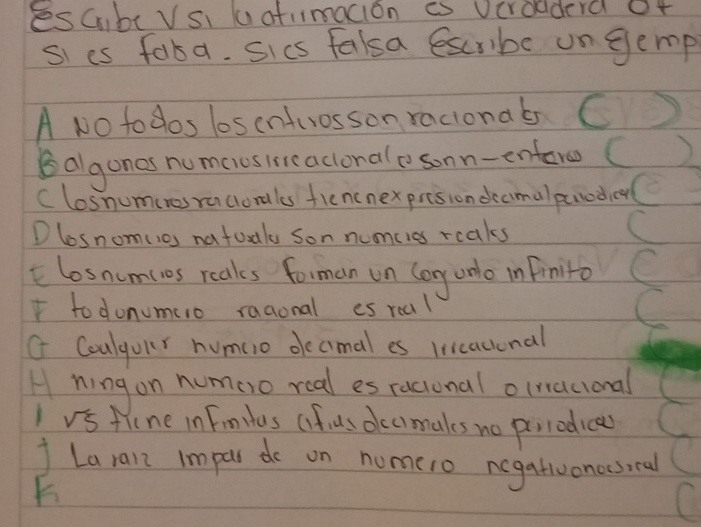 Escribe V si la afirmación es verdadera o f
si es falsa. Sies falsa Escribe un Ejemp
A No todos los enteros son racionales ( )
B algunos numeros irreacionales son n-enteros ( )
C los numeros racionales tienen expresion decimal periodica (
D los numeros naturales son numeros reales (
E los numeros reales forman un conjunto infinito (
F todo numero racional es real (
G Cualquier numero decimal es irreacional
H ningun numero real es racional o irracional (
I √5 tiene infinitas cifras decimales no periodicas (
J La raiz impar de un numero negativo no es real (
K (